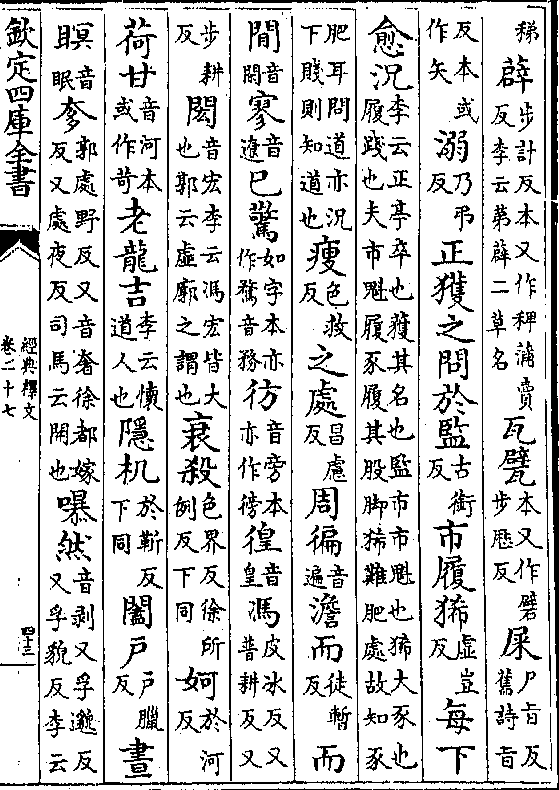 稊薜步計反本又作稗蒲賣反李云第薜二草名瓦甓本又作礕步歷反屎尸旨反舊詩旨
反本或作矢溺乃弔反正獲之問於監古銜反市履狶虛豈反每下
愈況李云正亭卒也獲其名也監市市魁也狶大豕也履踐也夫市魁履豕履其股脚狶難肥處故知豕
肥耳問道亦況下賤則知道也瘦色救反之處昌慮反周徧音遍澹而徒暫反而
閒音閑寥音遼已驚如字本亦作騖音務彷音旁本亦作徬徨音皇馮皮冰反又普耕反又
步耕反閎音宏李云馮宏皆大也郭云虛廓之謂也衰殺色界反徐所例反下同妸於河反
荷甘音河本或作苛老龍吉李云懷道人也隱机於靳反下同闔戶戶臘反晝
瞑音眠奓郭處野反又音奢徐都嫁反又處夜反司馬云開也嚗然音剝又孚邈反又孚貌反李云
欽定四庫全書
經典釋文
卷二十七
四十三